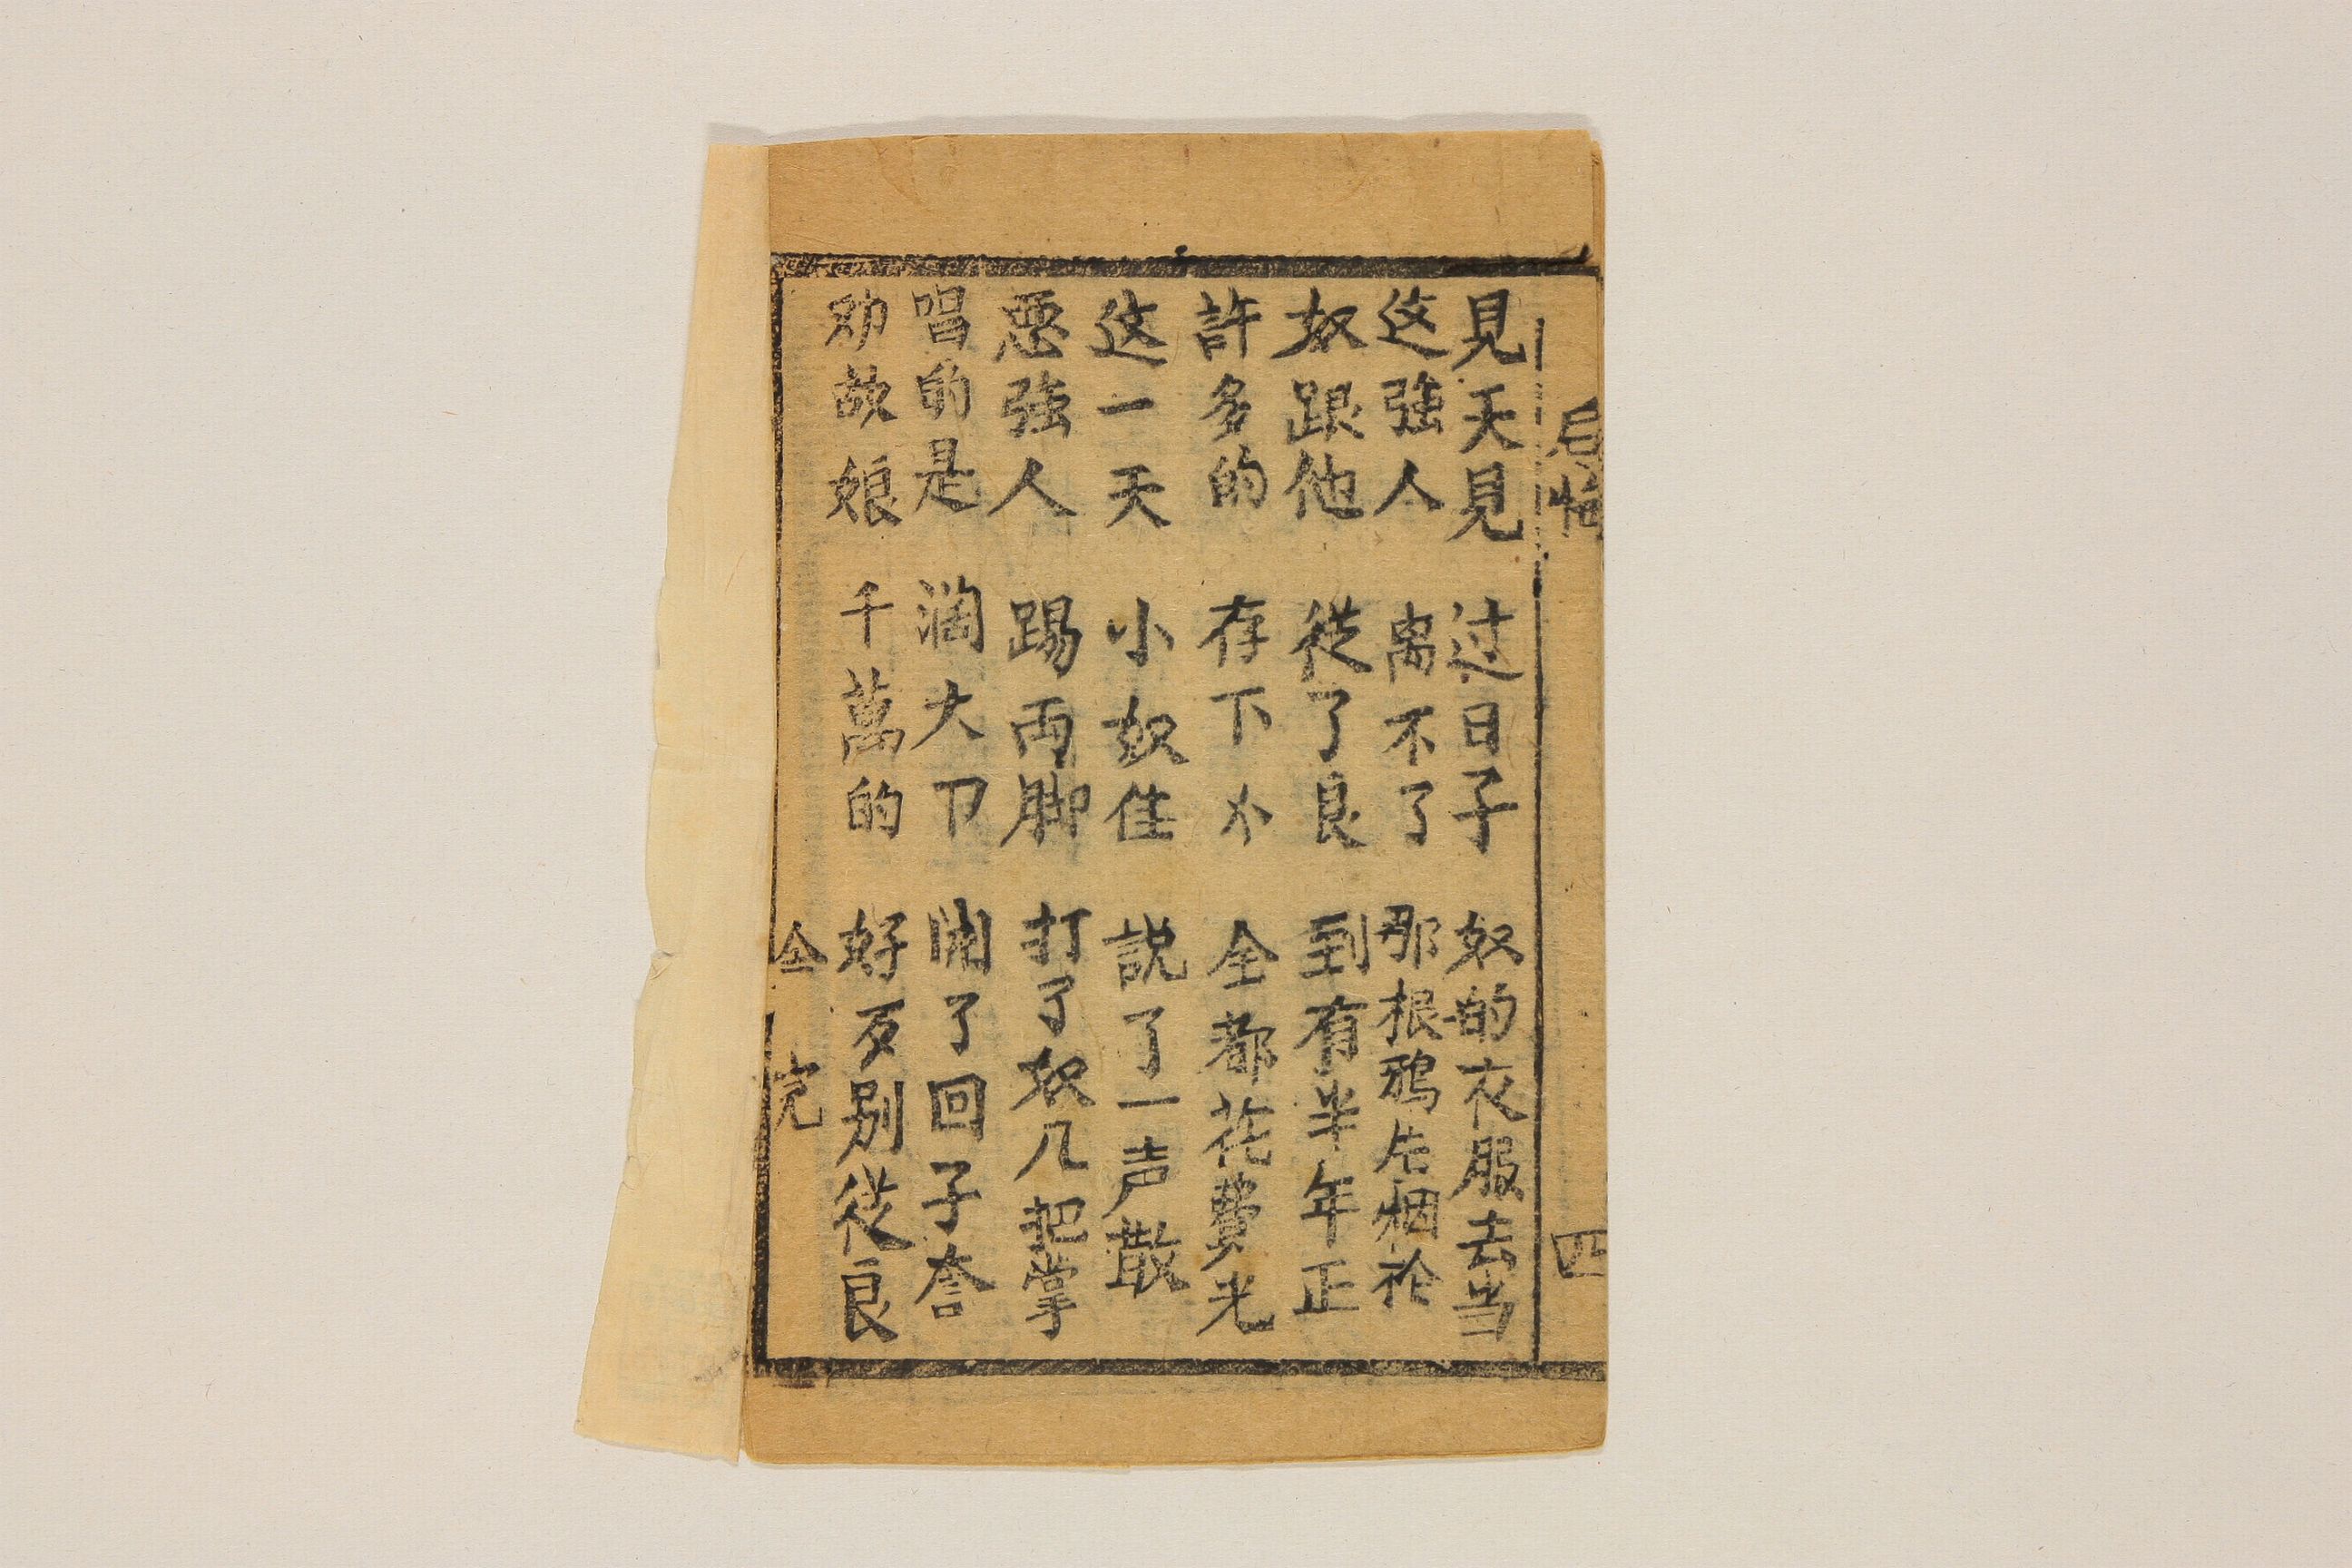 后悔 四
見天見 过日子 奴的衣服去当
这強人 离不了 那根鴉片烟
奴跟他 從了良 到有半年正
許多的 存下个 全都花費光
这一天 小奴住 説了一声散
惡強人 踢両脚 打了奴几把掌
唱的是 大卫 開了回子
劝故娘 千萬的 好歹别從良
全 完